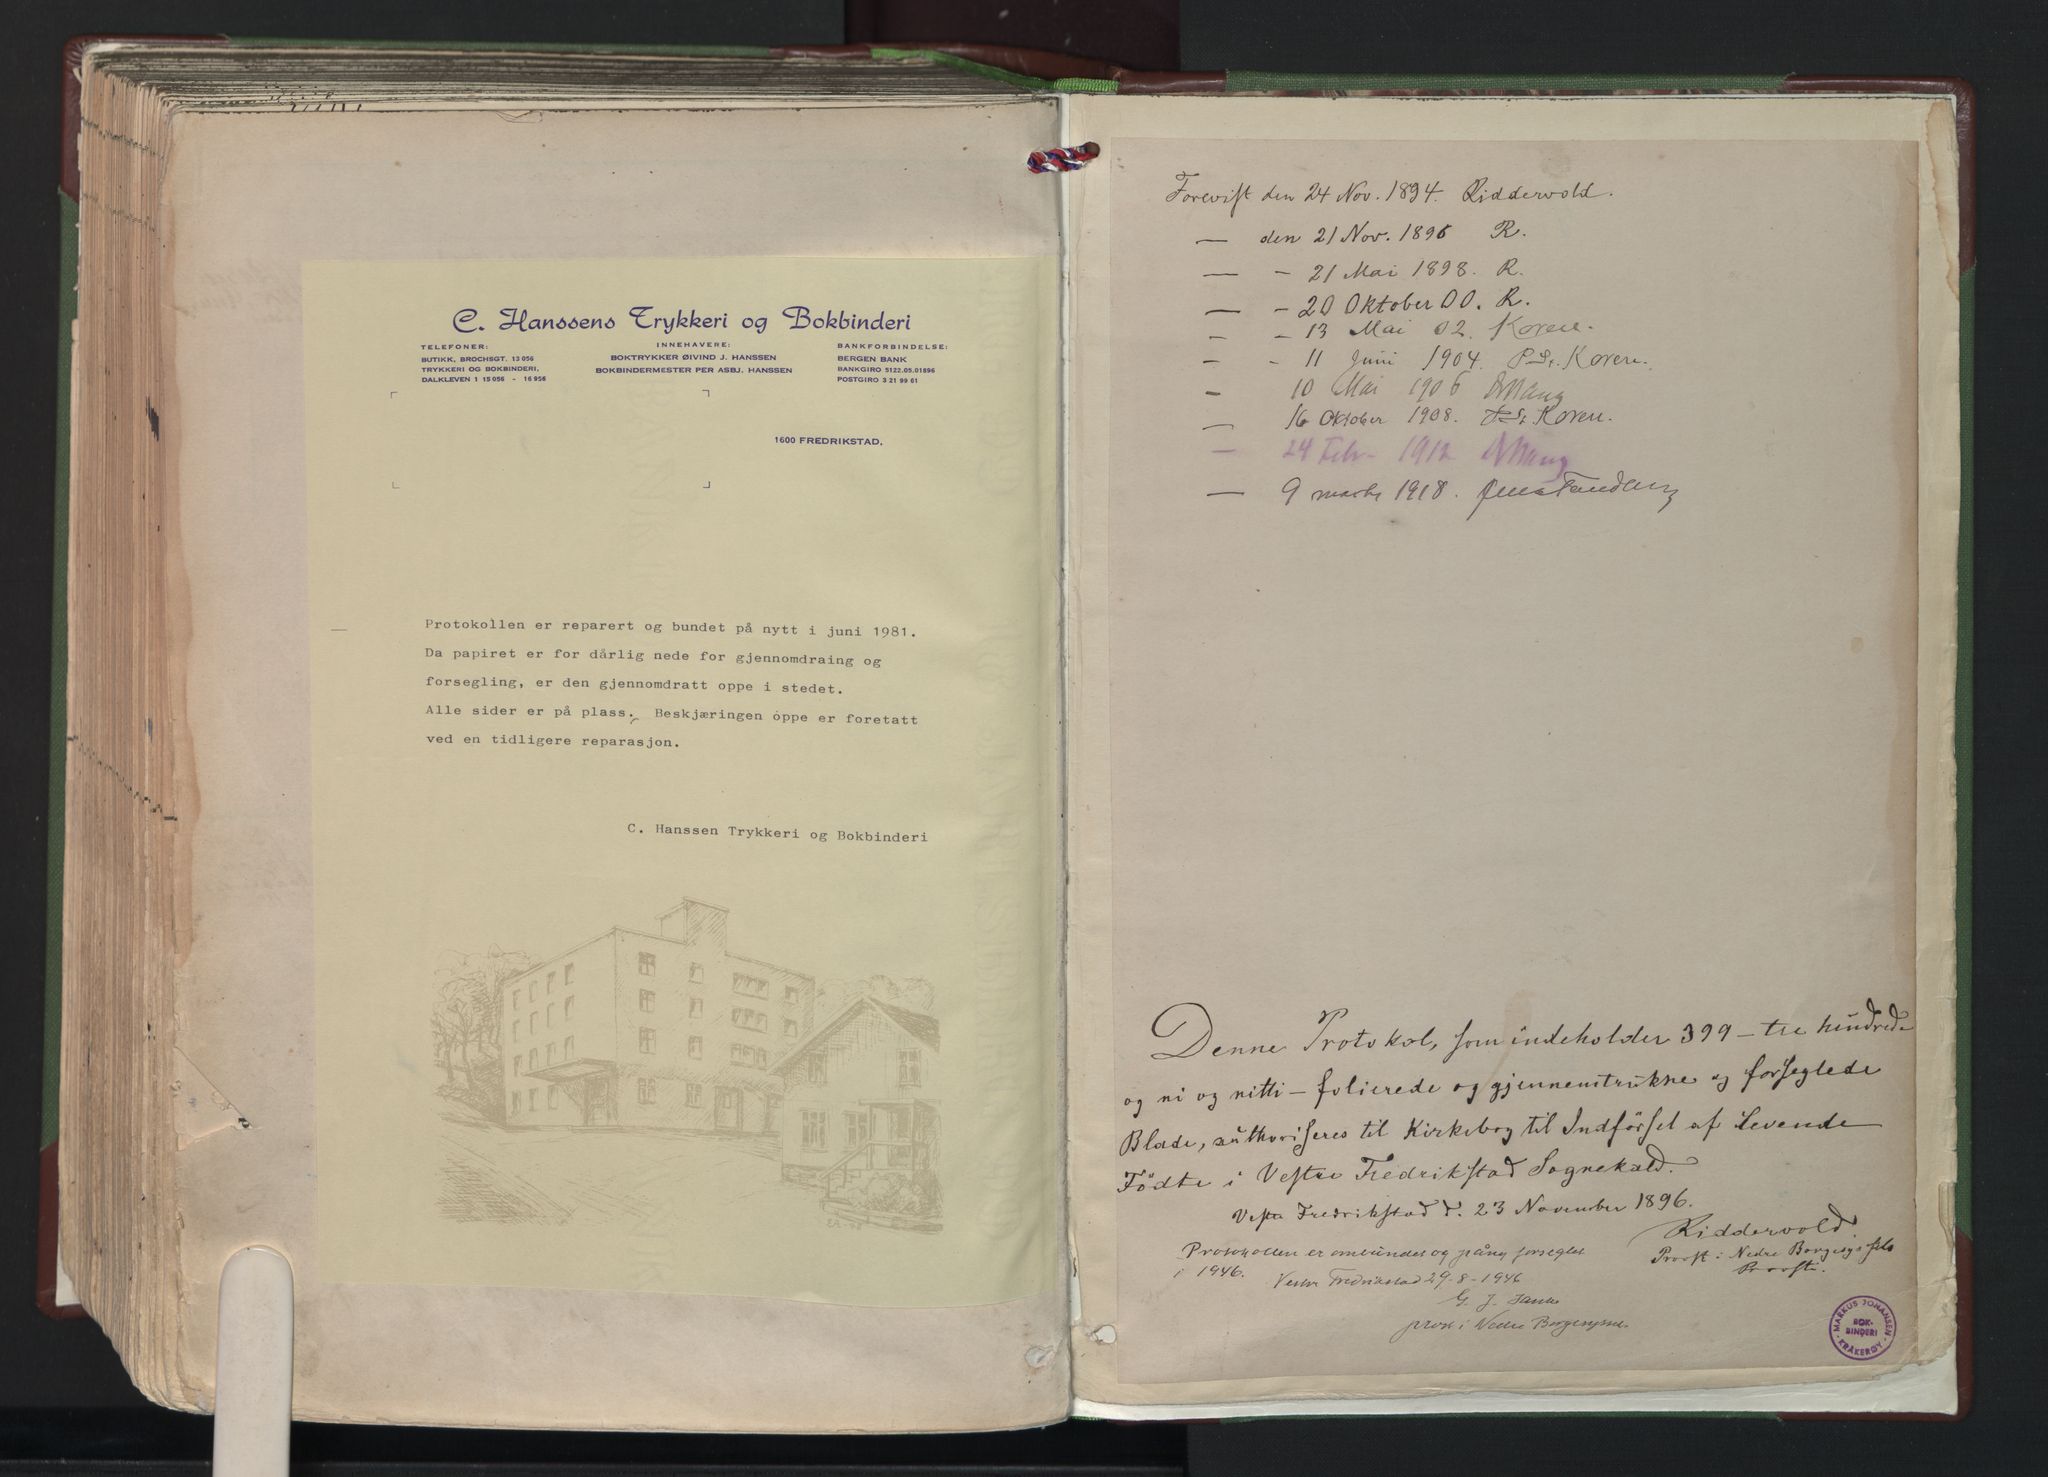 C. Hanssens Trykkeri og Bokbinderi
TELEFONER:
BUTIKK, BROCHSGT. 13 056
TRYKKERI OG BOKBINDERI,
DALKLEVEN 1 15 056 - 16 956
INNEHAVERE:
BOKTRYKKER ØIVIND J. HANSSEN
BOKBINDERMESTER PER ASBJ. HANSSEN
BANKFORBINDELSE:
BERGEN BANK
BANKGIRO 5122.05.01896
POSTGIRO 3 21 99 61
1600 FREDRIKSTAD.
Protokollen er reparert og bundet på nytt i juni 1981.
Da papiret er for dårlig nede for gjennomdraing og
forsegling, er den gjennomdratt oppe i stedet.
Alle sider er på plass. Beskjæringen oppe er foretatt
ved en tidligere reparasjon.
C. Hanssen Trykkeri og Bokbinderi
Forevist den 24 Nov. 1894. Riddervold.
— den 21 Nov. 1896 R.
— - 21 Mai 1898. R.
— - 20 Oktober 00. R.
- - 13 Mai 02. Koren.
- - 11 Juni 1904. Koren.
- 10 Mai 1906
— 16 Oktober 1908. Koren.
— 24 Febr 1912
— 9 marts 1918.
Denne Protokol, som indeholder 399 – tre hundrede
og ni og nitti – folierede og gjennemtrukne og forseglede
Blade, authoriseres til Kirkebog til Indførsel af Levende
Födte i Vestre Fredrikstad Sognekald.
Vestre Fredrikstad d. 23 November 1896.
Riddervold.
Provst i Nedre Borgesyssels
Provsti.
Protokollen er ombundet og påny forseglet
i 1946. Vestre Fredrikstad 29-8-1946
G. J.
prost i Nedre Borgesyssel
MARKUS JOHANSEN
BOK-
BINDERI
KRÅKERØY